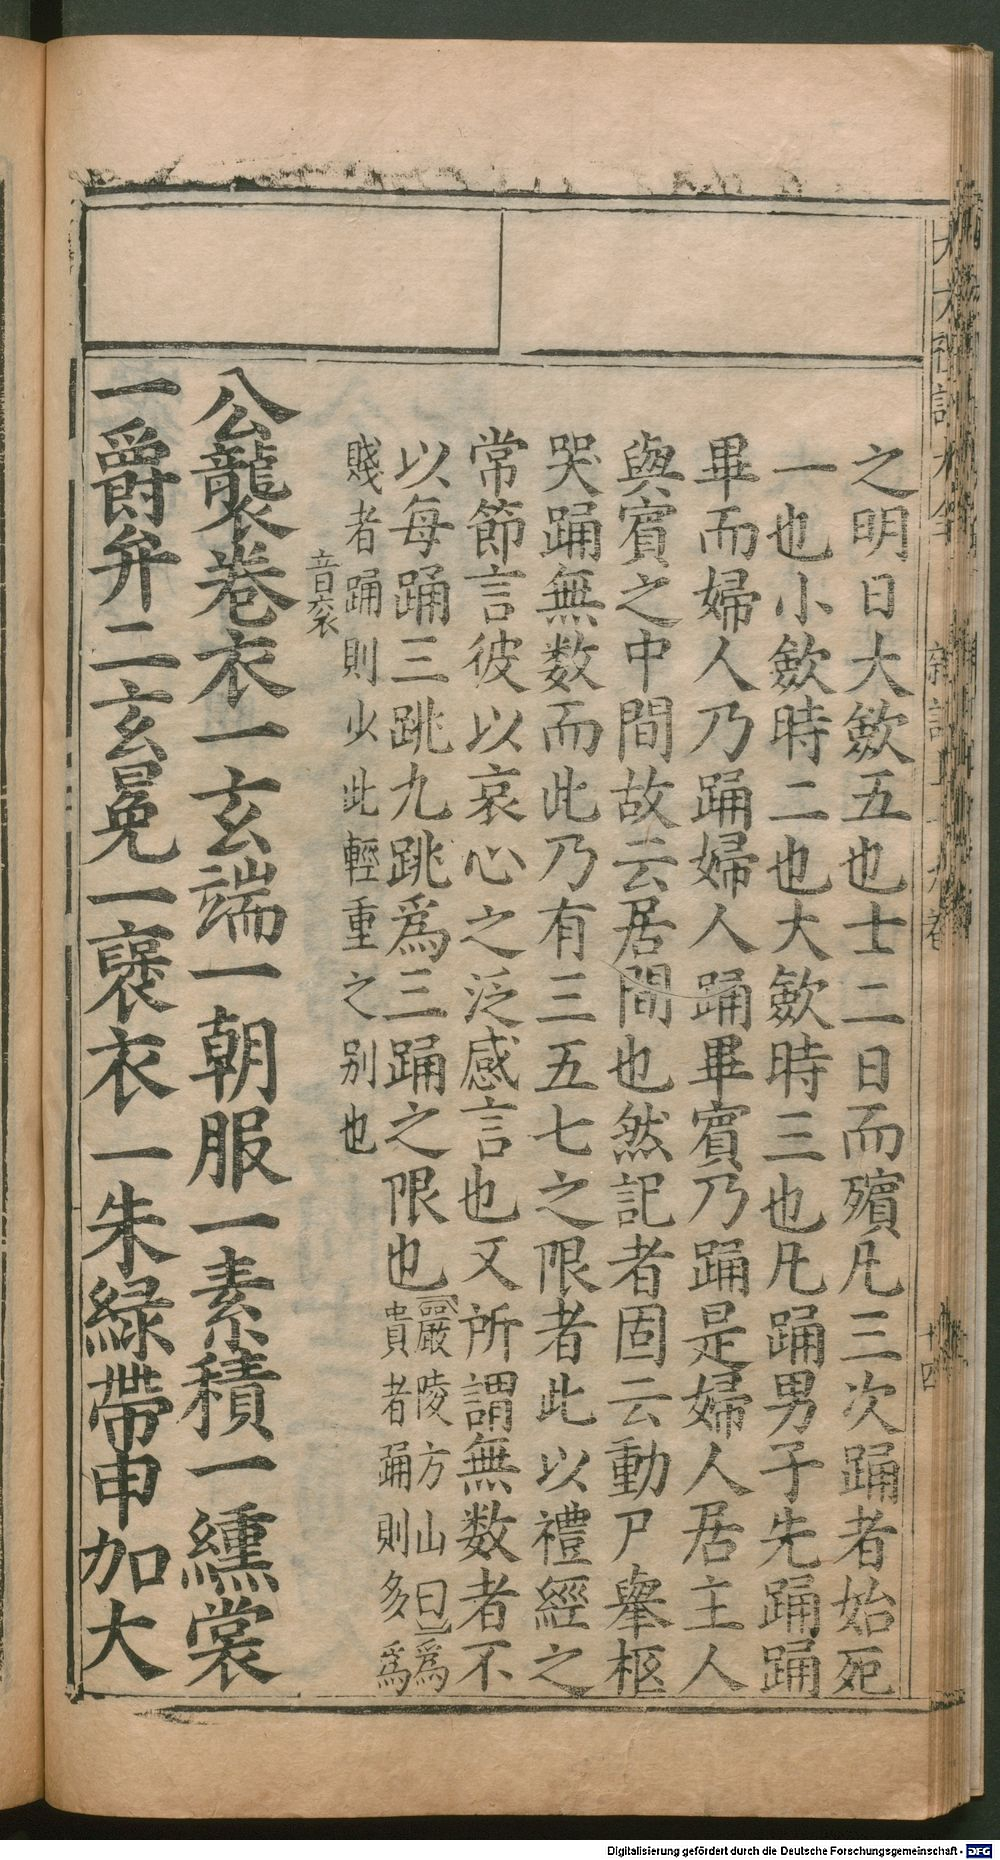 之明日大斂五也士二日而殯凡三次踊者始死
一也小斂時二也大斂時三也凡踊男子先踊踊
畢而婦人乃踊婦人踊畢賓乃踊是婦人居主人
與賓之中間故云居間也然記者固云動尸舉柩
哭踊無数而此乃有三五七之限者此以禮經之
常節言彼以哀心之泛感言也又所謂無数者不
以每踊三跳九跳爲三踊之限也
嚴陵方山曰爲
貴者踊則多爲
賤者踊則少此輕重之别也
公襲卷衣一玄端一朝服一素積一纁裳
音衮
一爵弁二玄冕一褒衣一朱緑帶申加大
十四
Digitalisierung gefördert durch die Deutsche Forschungsgemeinschaft - DFG